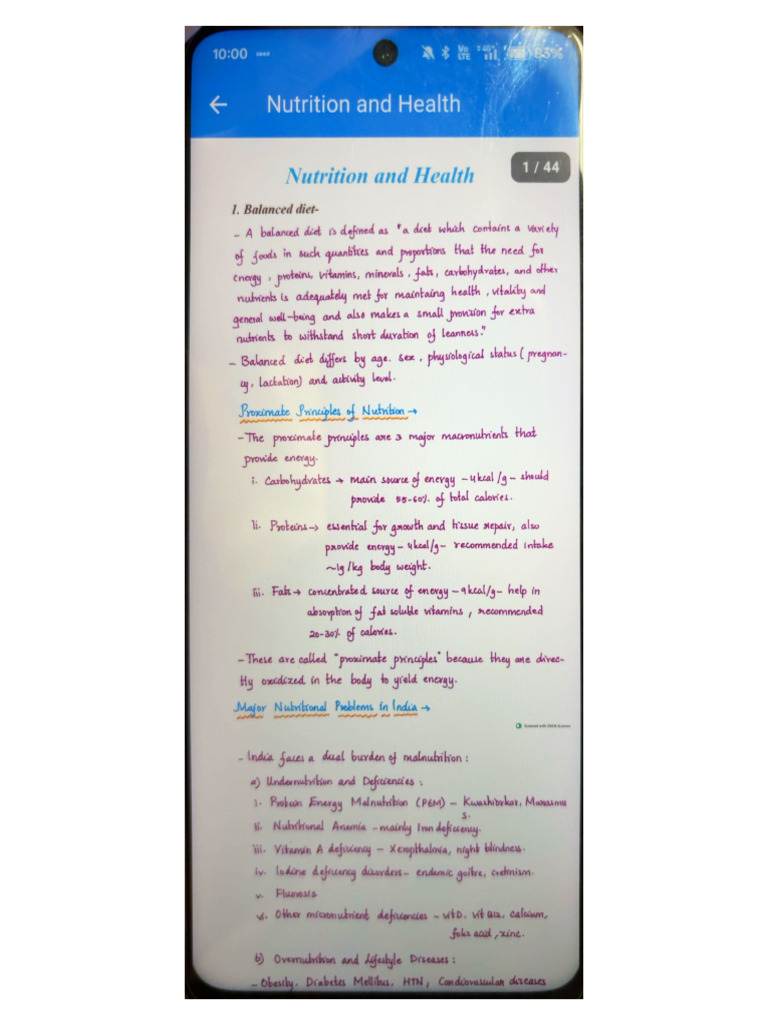 10:00
Vo LTE 4G 83%
Nutrition and Health
1 / 44
Nutrition and Health
1. Balanced diet-
- A balanced diet is defined as "a diet which contains a variety
of foods in such quantities and proportions that the need for
energy, proteins, vitamins, minerals, fats, carbohydrates, and other
nutrients is adequately met for maintaing health, vitality and
general well-being and also makes a small provision for extra
nutrients to withstand short duration of leanness."
- Balanced diet differs by age, sex, physiological status (pregnan-
cy, lactation) and activity level.
Proximate Principles of Nutrition →
- The proximate principles are 3 major macronutrients that
provide energy.
i. Carbohydrates → main source of energy - 4kcal/g - should
provide 55-60% of total calories.
ii. Proteins → essential for growth and tissue repair, also
provide energy - 4kcal/g - recommended intake
~1g/kg body weight.
iii. Fats → concentrated source of energy - 9kcal/g - help in
absorption of fat soluble vitamins, recommended
20-30% of calories.
- These are called "proximate principles" because they are direc-
tly oxidized in the body to yield energy.
Major Nutritional Problems in India →
Scanned with OKEN Scanner
- India faces a dual burden of malnutrition:
a) Undernutrition and Deficiencies:
i. Protein Energy Malnutrition (PEM) - Kwashiorkar, Marasmu
s.
ii. Nutritional Anemia - mainly Iron deficiency.
iii. Vitamin A deficiency - Xeropthalmia, night blindness.
iv. Iodine deficiency disorders - endemic goitre, cretinism.
v. Fluorosis
vi. Other micronutrient deficiencies - vit D, vit B12, calcium,
folic acid, zinc.
b) Overnutrition and Lifestyle Diseases:
- Obesity, Diabetes Mellitus, HTN, Cardiovascular diseases